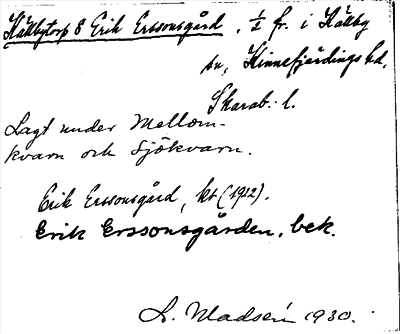 Källbytorp 8 Erik Erssonsgård, ½ fr. i Källby
sn, Kinnefjärdings hd,
Skarab. l.
Lagt under Mellom-
kvarn och Sjökvarn.
Erik Erssonsgård, kt (1912).
Erik Erssonsgården, bek.
L. Madsén 1930.